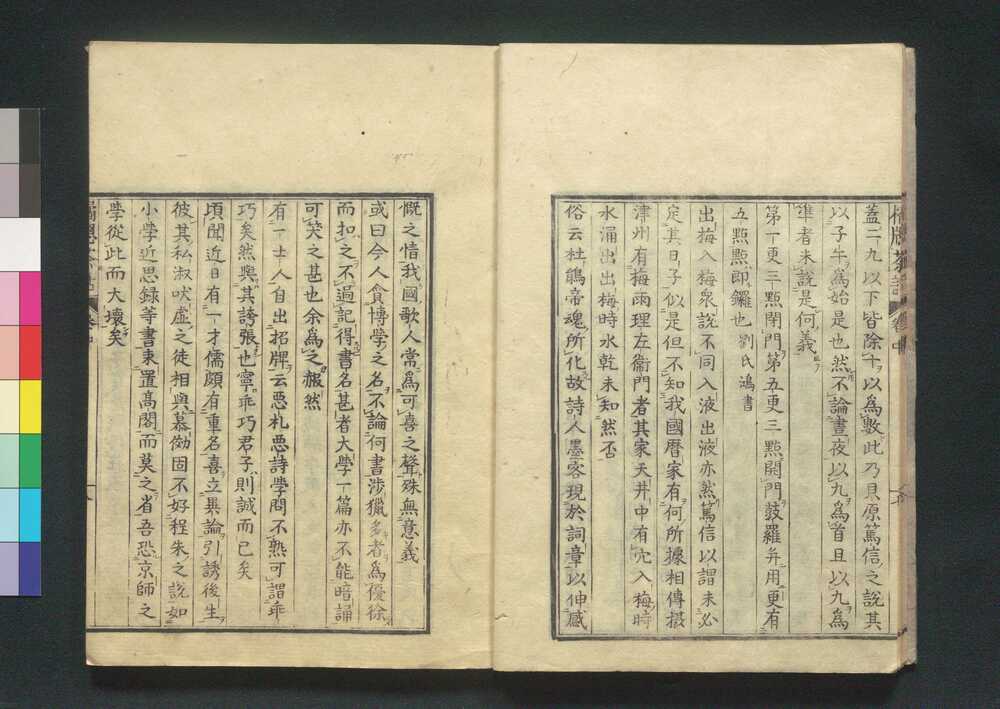 蓋二九以下皆除十以為數此乃貝原篤信之說其
以子午為始是也然不論晝夜以九為首且以九為
準者未說是何義
第一更三點閉門第五更三點開門鼓羅并用更有
五點點即鑼也 劉氏鴻書
出梅入梅衆說不同入液出液亦然篤信以謂未必
定其日子似是但不知我國曆家有何所據相傳攝
津州有梅雨理左衛門者其家天井中有穴入梅時
水涌出出梅時水乾未知然否
俗云杜鵑帝魂所化故詩人墨客現於詞章以伸感
慨之情我國歌人常為可喜之聲殊無意義
或曰今人貪博學之名不論何書涉獵多者為優徐
而扣之不過記得書名甚者大學一篇亦不能暗誦
可笑之甚也余為之赧然
有一士人自出招牌云惡札惡詩學問不熟可謂乖
巧矣然與其誇張也寧乖巧君子則誠而已矣
頃聞近日有一才儒頗有重名喜立異論引誘後生
彼其私淑吠虛之徒相與慕傚固不好程朱之說如
小學近思録等書束置高閣而莫之省吾恐京師之
學從此而大壞矣